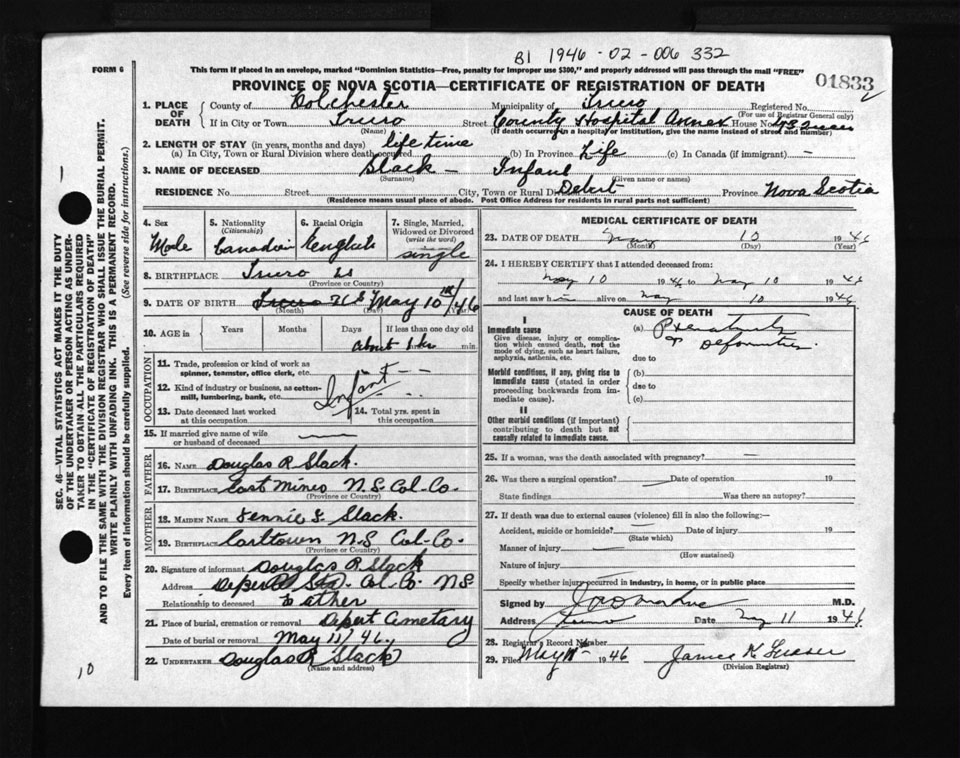 B1 1946-02-006 332
FORM 6
This form if placed in an envelope, marked "Dominion Statistics—Free, penalty for improper use $300," and properly addressed will pass through the mail "FREE"
PROVINCE OF NOVA SCOTIA—CERTIFICATE OF REGISTRATION OF DEATH
01833
1. PLACE OF DEATH
County of Colchester Municipality of Truro Registered No.
(For use of Registrar General only)
If in City or Town Truro Street County Hospital Annex House No.
(Name) (If death occurred in a hospital or institution, give the name instead of street and number)
2. LENGTH OF STAY (in years, months and days)
(a) In City, Town or Rural Division where death occurred life time (b) In Province Life (c) In Canada (if immigrant) —
3. NAME OF DECEASED Slack — Infant
(Surname) (Given name or names)
RESIDENCE No. Street City, Town or Rural Div. Debert Province Nova Scotia
(Residence means usual place of abode. Post Office Address for residents in rural parts not sufficient)
4. Sex Male
5. Nationality (Citizenship) Canadian
6. Racial Origin English
7. Single, Married, Widowed or Divorced (write the word) single
8. BIRTHPLACE Truro
(Province or Country)
9. DATE OF BIRTH Truro N S May 10th/46
(Month) (Day)
10. AGE in Years Months Days If less than one day old
About hrs min.
OCCUPATION
11. Trade, profession or kind of work as spinner, teamster, office clerk, etc.
12. Kind of industry or business, as cotton-mill, lumbering, bank, etc. Infant
13. Date deceased last worked at this occupation
14. Total yrs. spent in this occupation
15. If married give name of wife or husband of deceased —
FATHER
16. NAME Douglas R Slack.
17. BIRTHPLACE East Mines N.S. Col-Co.
(Province or Country)
MOTHER
18. MAIDEN NAME Jennie Slack.
19. BIRTHPLACE Earltown N.S Col-Co.
(Province or Country)
20. Signature of informant Douglas R Slack
Address Debert Sta. Col. Co. N S
Relationship to deceased Father
21. Place of burial, cremation or removal Debert Cemetary
Date of burial or removal May 11/46.
22. UNDERTAKER Douglas R Slack
(Name and address)
MEDICAL CERTIFICATE OF DEATH
23. DATE OF DEATH May 10 1946
(Month) (Day) (Year)
24. I HEREBY CERTIFY that I attended deceased from:
May 10 1946 to May 10 1946
and last saw him alive on May 10 1946
CAUSE OF DEATH
I
Immediate cause
Give disease, injury or complication which caused death, not the mode of dying, such as heart failure, asphyxia, asthenia, etc.
(a) Prematurity
& Deformities.
due to
Morbid conditions, if any, giving rise to immediate cause (stated in order proceeding backwards from immediate cause).
(b)
due to
(c)
II
Other morbid conditions (if important) contributing to death but not causally related to immediate cause.
25. If a woman, was the death associated with pregnancy? —
26. Was there a surgical operation? Date of operation 19
State findings Was there an autopsy?
27. If death was due to external causes (violence) fill in also the following:—
Accident, suicide or homicide? Date of injury 19
(State which)
Manner of injury
(How sustained)
Nature of injury
Specify whether injury occurred in industry, in home, or in public place
Signed by M.D.
Address Truro Date May 11 1946
28. Registrar's Record Number
29. Filed May 1946 James K
(Division Registrar)
SEC. 46—VITAL STATISTICS ACT MAKES IT THE DUTY
OF THE UNDERTAKER OR PERSON ACTING AS UNDER-
TAKER TO OBTAIN ALL THE PARTICULARS REQUIRED
IN THE "CERTIFICATE OF REGISTRATION OF DEATH"
AND TO FILE THE SAME WITH THE DIVISION REGISTRAR WHO SHALL ISSUE THE BURIAL PERMIT.
WRITE PLAINLY WITH UNFADING INK. THIS IS A PERMANENT RECORD.
Every item of information should be carefully supplied. (See reverse side for instructions.)
10